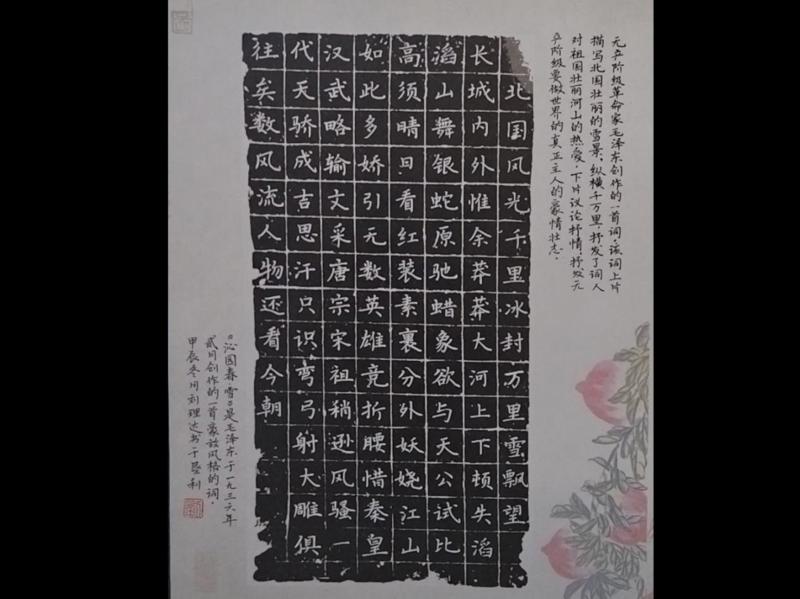 无产阶级革命家毛泽东创作的一首词，该词上片
描写北国壮丽的雪景，纵横千万里，抒发了词人
对祖国壮丽河山的热爱，下片议论抒情，抒发无
产阶级要做世界的真正主人的豪情壮志。
北国风光千里冰封万里雪飘望
长城内外惟余莽莽大河上下顿失滔
滔山舞银蛇原驰蜡象欲与天公试比
高须晴日看红装素裹分外妖娆江山
如此多娇引无数英雄竞折腰惜秦皇
汉武略输文采唐宗宋祖稍逊风骚一
代天骄成吉思汗只识弯弓射大雕俱
往矣数风流人物还看今朝
《沁园春雪》是毛泽东于一九三六年
贰月创作的一首豪放风格的词。
甲辰冬月刘理达书于垦利